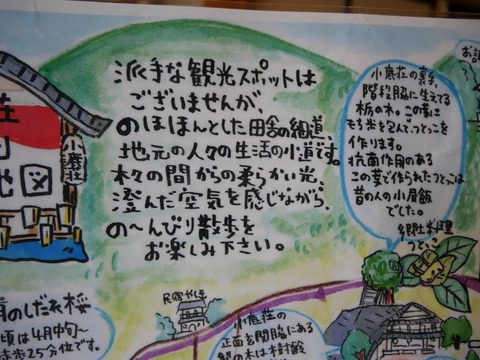 派手な観光スポットは
ございませんが、
のほほんとした田舎の細道、
地元の人々の生活の小道です。
木々の間からの柔らかい光、
澄んだ空気を感じながら、
の〜んびり散歩を
お楽しみ下さい。
小鹿荘の裏手、
階段脇に生えてる
栃の木。この葉に
もち米を包んで、つとっこを
作ります。
抗菌作用のある
この葉で作られたつとっこは
昔の人の小昼飯
でした。
郷土料理
つとっこ
荘
地図
小鹿荘
のしだれ桜
頃は4月中旬〜
徒歩25分位です。
民宿やまほ
小鹿荘の
正面玄関脇にある
の木は樹齢